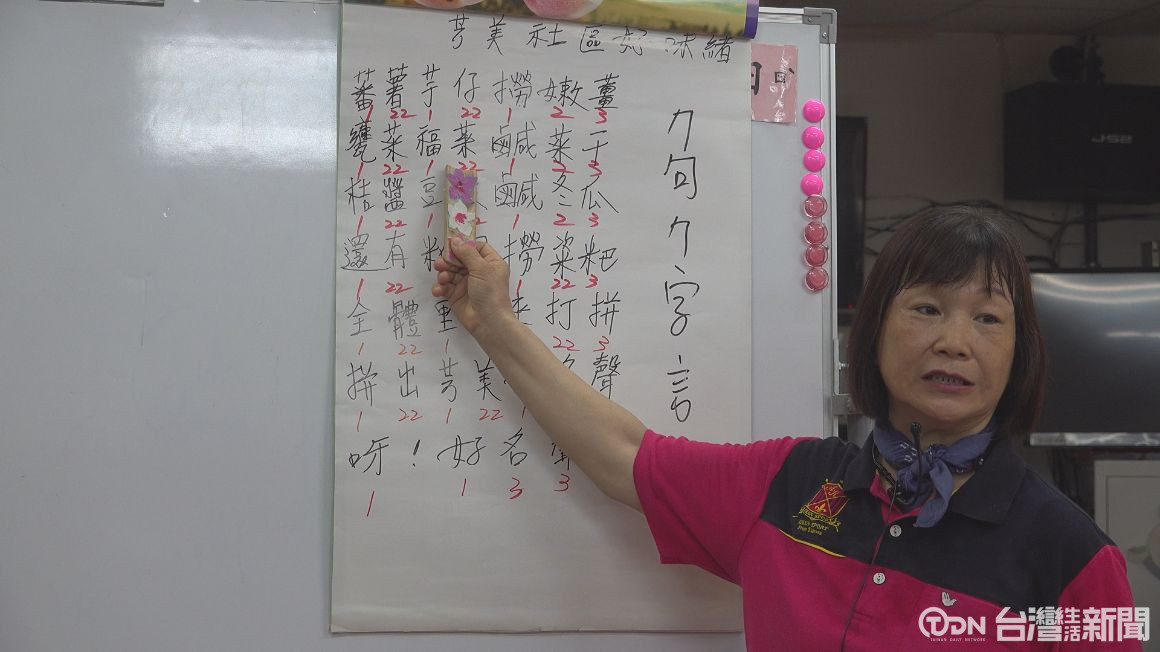 芎美社區好味緒
蕃薯芋仔撈嫩薑
1 22 1 22 1 2 3
甕菜福菜鹹菜干
1 22 1 22 1 2 3
桔醬豆 鹹冬瓜
1 22 1 2 1 2 3
還有粄 撈粢粑
1 22 1 22 3
全體 打拼
1 22 1 22 3
拼出芎美 聲
1 22 1 22 1 3
呀！好名
1 1 3 3
九句九字言
JBL
TDN
TAIWAN DAILY NETWORK
台灣生活新聞